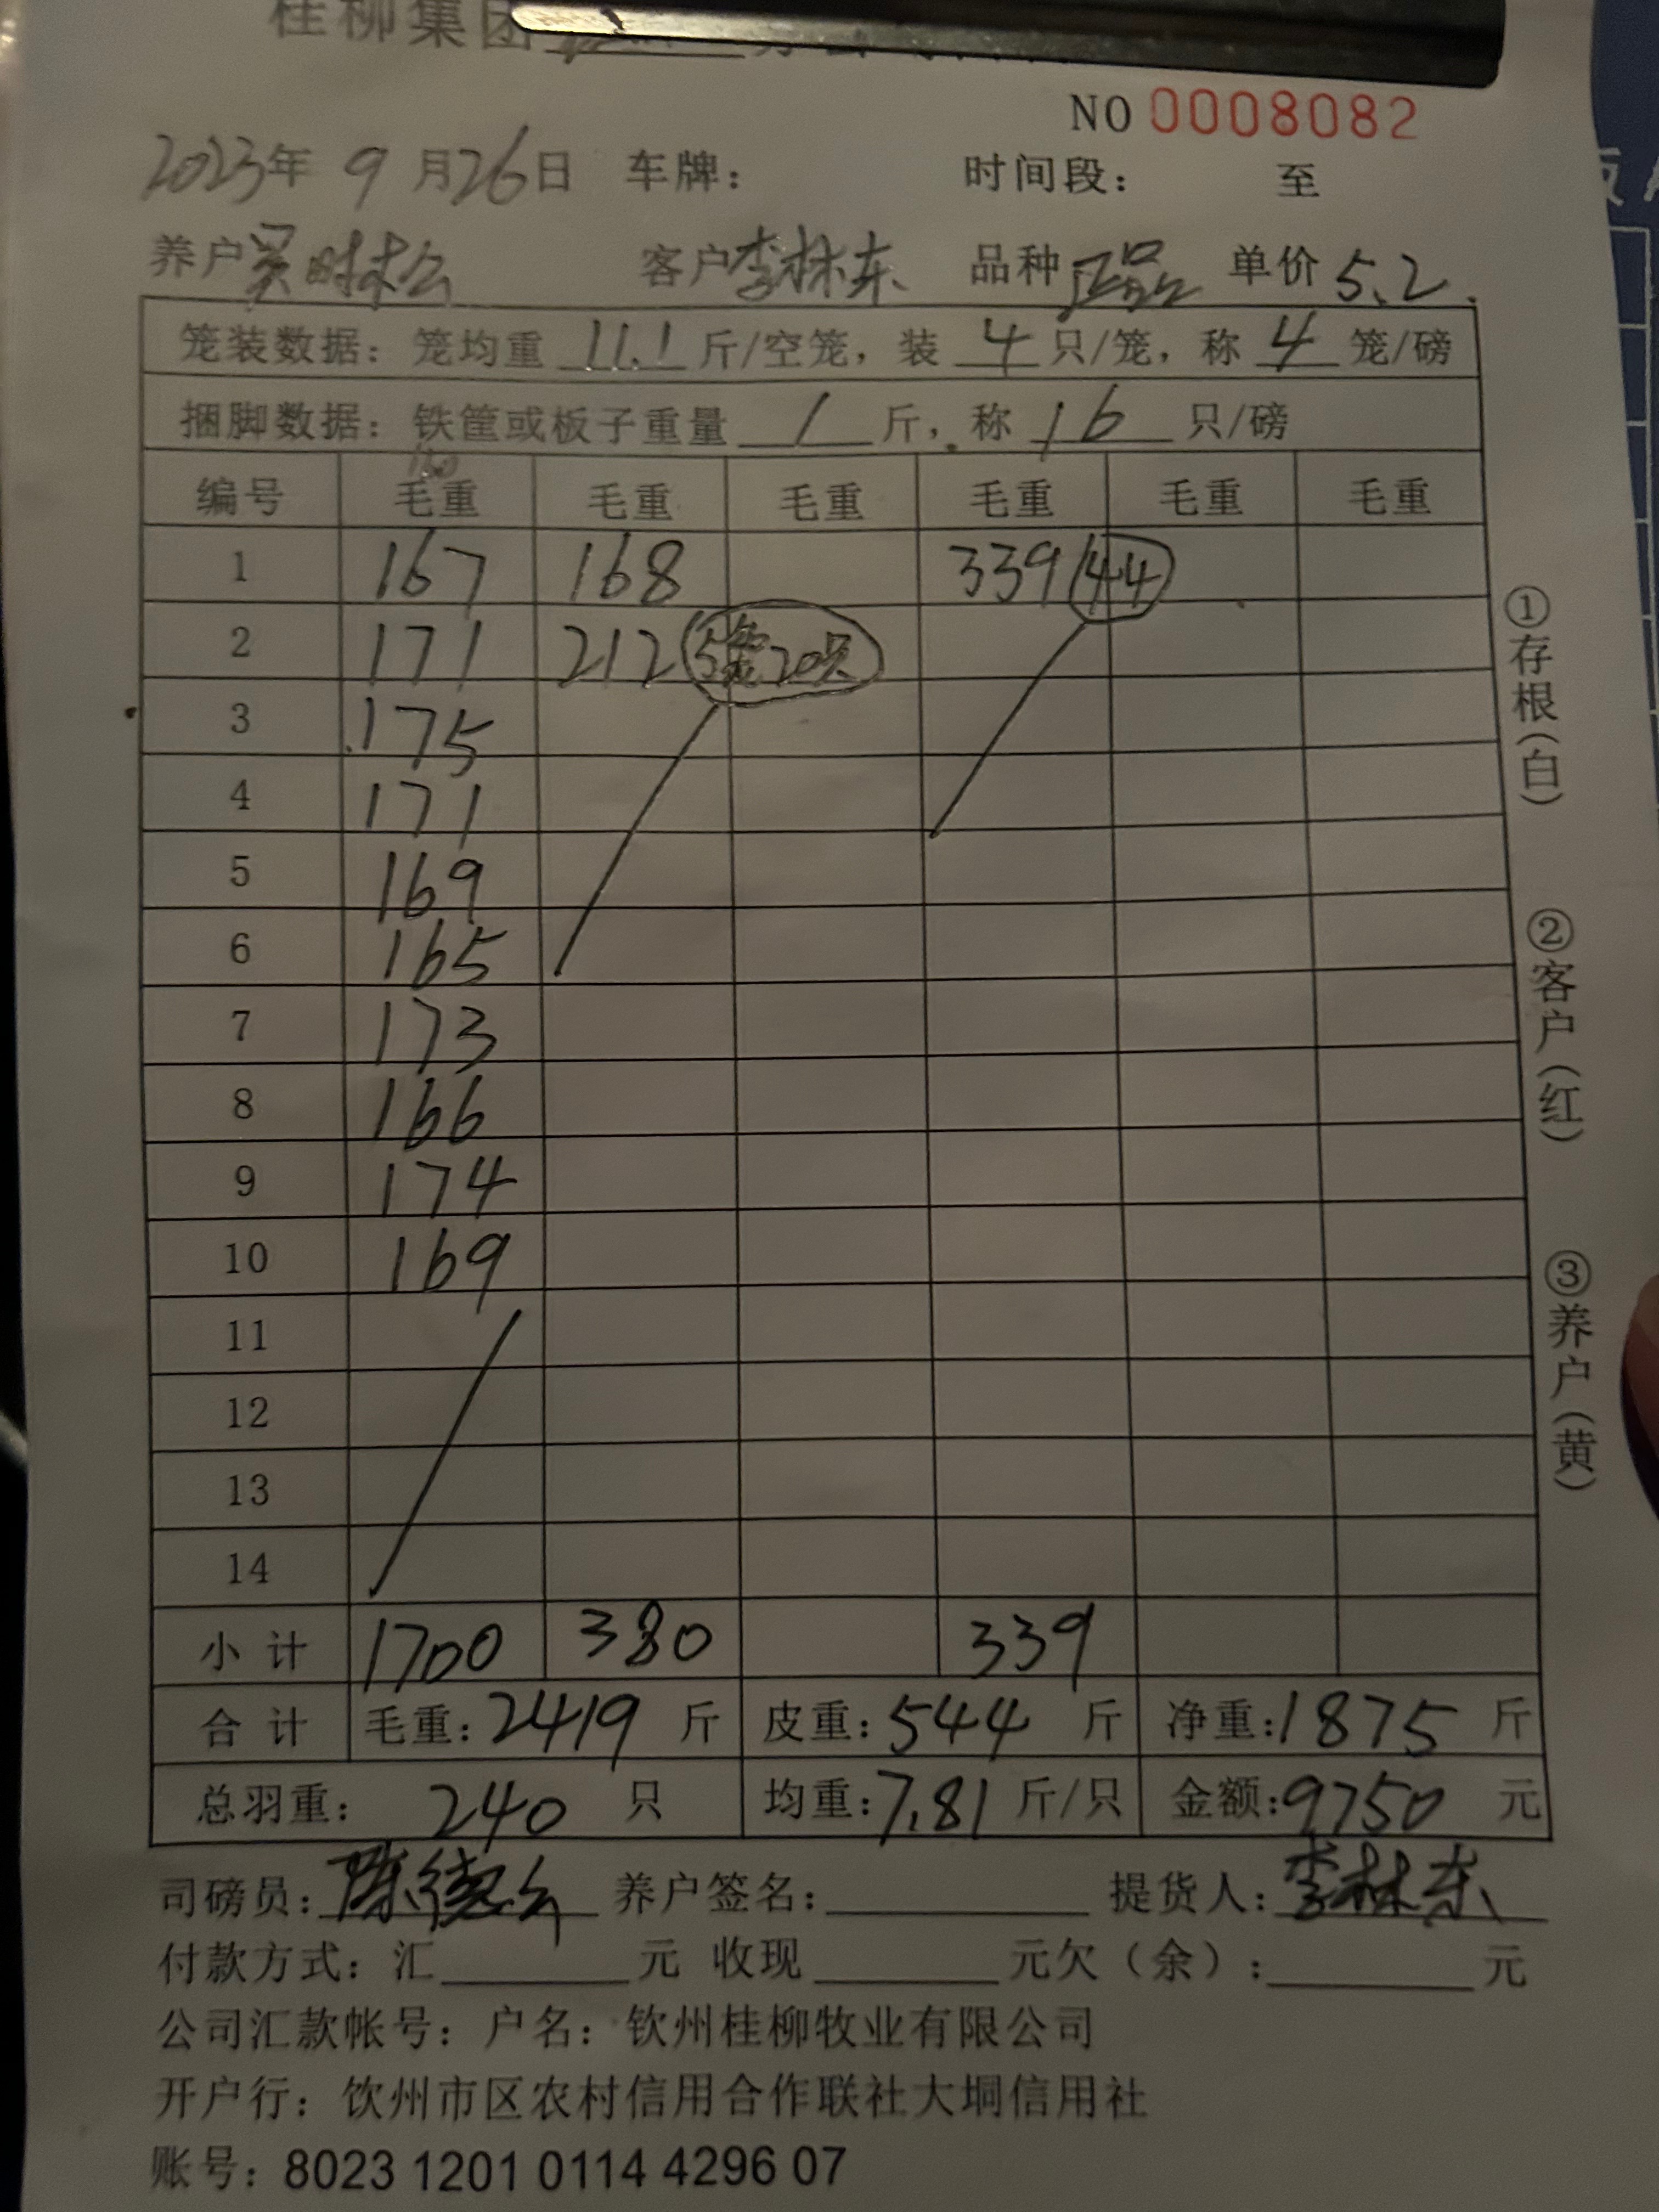 桂柳集团
NO 0008082
2023年 9月26日 车牌： 时间段： 至
养户 客户李林东 品种正品 单价5.2
笼装数据：笼均重 11.1 斤/空笼，装 4 只/笼，称 4 笼/磅
捆脚数据：铁筐或板子重量 / 斤，称 16 只/磅
编号 毛重 毛重 毛重 毛重 毛重 毛重
1 167 168 339 44
2 171 212 5笼20只
3 175
4 171
5 169
6 165
7 173
8 166
9 174
10 169
11
12
13
14
小计 1700 380 339
合计 毛重：2419 斤 皮重：544 斤 净重：1875 斤
总羽重： 240 只 均重：7.81 斤/只 金额：9750 元
司磅员： 养户签名： 提货人：李林东
付款方式：汇 元 收现 元欠（余）： 元
公司汇款帐号：户名：钦州桂柳牧业有限公司
开户行：饮州市区农村信用合作联社大垌信用社
账号：8023 1201 0114 4296 07
①存根（白）
②客户（红）
③养户（黄）